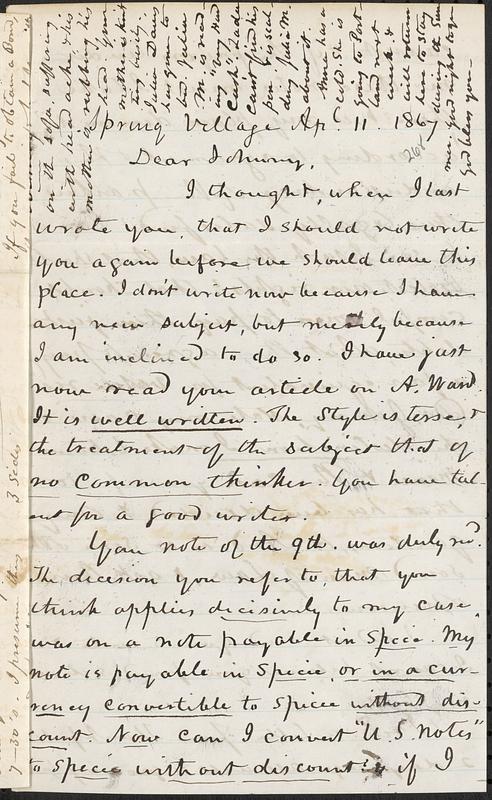 Spring Village Apl 11. 1867
268
Dear Johnny,
I thought, when I last
wrote you, that I should not write
you again before we should leave this
place. I don't write now because I have
any new subject, but merely because
I am inclined to do so. I have just
now read your article on A. Ward.
It is well written. The style is terse, &
the treatment of the subject that of
no common thinker. You have tal-
ent for a good writer.
Your note of the 9th. was duly recd.
The decision you refer to, that you
think applies decisively to my case,
was on a note payable in Specie. My
note is payable in Specie, or in a cur-
rency convertible to Specie without dis-
count. Now can I convert "U.S. notes"
to Specie without discount? if I
on the sofa suffering
with head ache & his
mother is rubbing his
head. Your
mother is knit
ting busily.
Julia Davis
has gone to
bed. Julia
M. is read-
ing
Cash". Sadie
can't find his
pen
ding Julia M.
about it.
Marie has a
cold. She is
going to Port-
land next
week &
will return
here to stay
during the sum
mer. Good night to you
God bless you.
If you fail to obtain a Bond,
7-30's. I presume they
3 sides